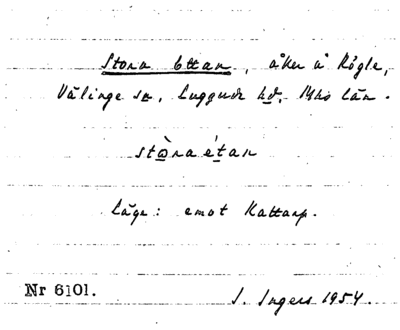 Stora Ettan, åker å Rögle,
Välinge sn, Luggude hd, Mhs län.
stòra étan
Läge: emot Kattarp.
Nr 6101.
I. Ingers 1954.